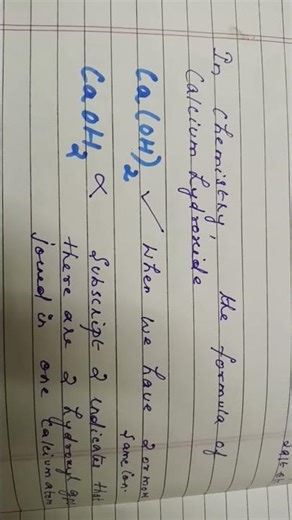 In Chemistry, the formula of
Calcium hydroxide
Ca(OH)2 ✓ When we have 2 or more
same ion.
CaOH2 ∝ Subscript 2 indicates that
there are 2 hydroxyl
joined in one Calcium atom